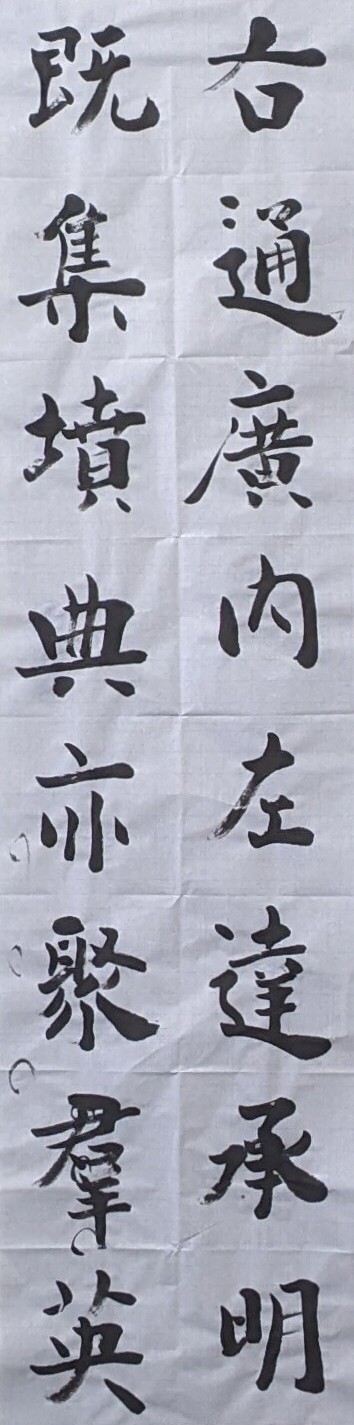 右通廣内左達承明
既集墳典亦聚羣英